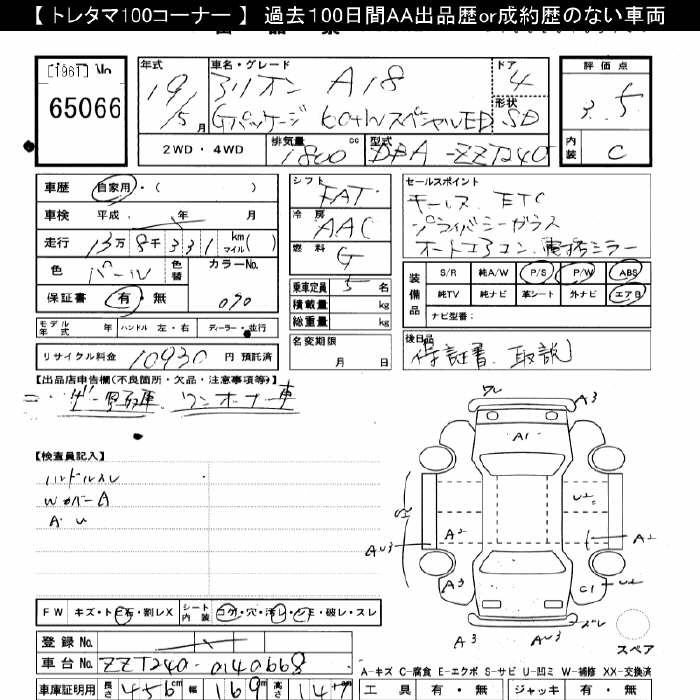 【 トレタマ100コーナー 】 過去100日間AA出品歴or成約歴のない車両
[196] No
65066
年式 車名・グレード ドア 評価点
19/5月 アリオン A18 4 3.5
Gパッケージ 60th スペシャルED 形状 SD
2WD・4WD 排気量 1800cc 型式 DBA-ZZT240 内装 C
車歴 自家用・( )
車検 平成 年 月
走行 13万8千331 km マイル( )
色 パール 色替 カラーNo. 070
保証書 有・無
モデル年式 年 ハンドル 左・右 ディーラー・並行
リサイクル料金 10930 円 預託済
シフト FAT
冷房 AAC
燃料 G
乗車定員 5 名
積載量 kg
総重量 kg
名変期限 月 日
セールスポイント
キーレス ETC
プライバシーガラス
オートエアコン 電格ミラー
装備品 S/R 純A/W P/S P/W ABS
純TV 純ナビ 革シート 外ナビ エアB
ナビ型番:
後日品
保証書、取説
【出品店申告欄(不良箇所・欠品・注意事項等)】
ワンオーナー車
【検査員記入】
ハンドルスレ
WカバーA
A・U
FW キズ・トビ石・割レX シート内装 コゲ・穴・汚レ・シミ・破レ・スレ
登録 No.
車台 No. ZZT240-0140668
車庫証明用 長さ 456cm 幅 169m 高さ 147m
A3
A1
U2
A2
A2
AU3
A3
C1
U2
A3
AU3
スペア
A-キズ C-腐食 E-エクボ S-サビ U-凹ミ W-補修 XX-交換済
工具 有・無 ジャッキ 有・無